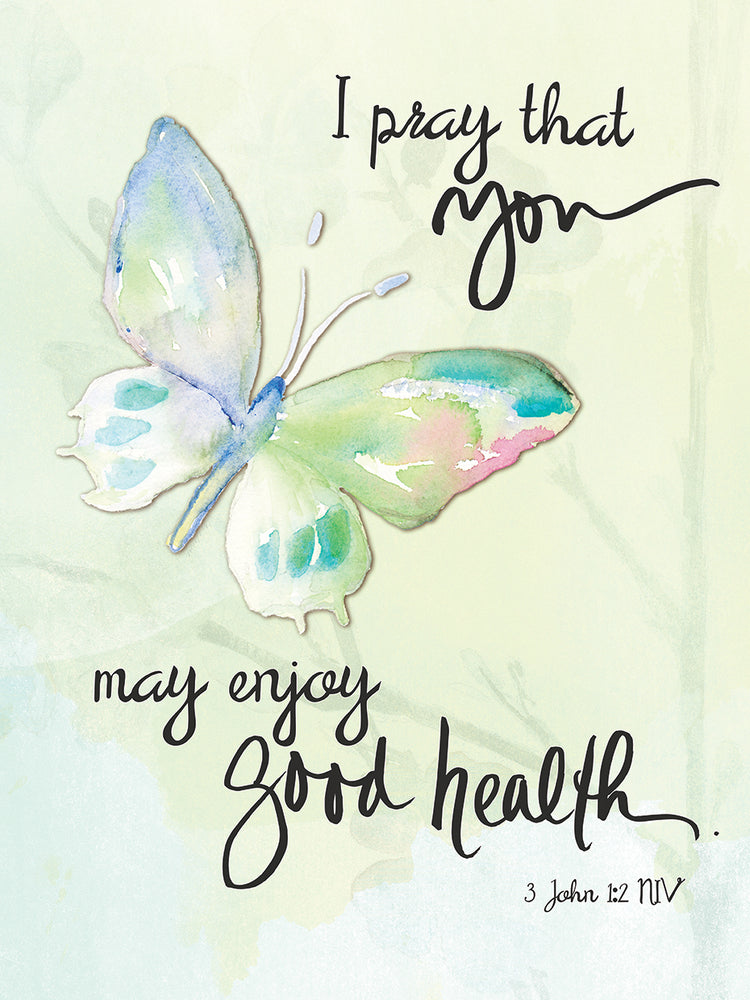 I pray that
you
may enjoy
good health.
3 John 1:2 NIV